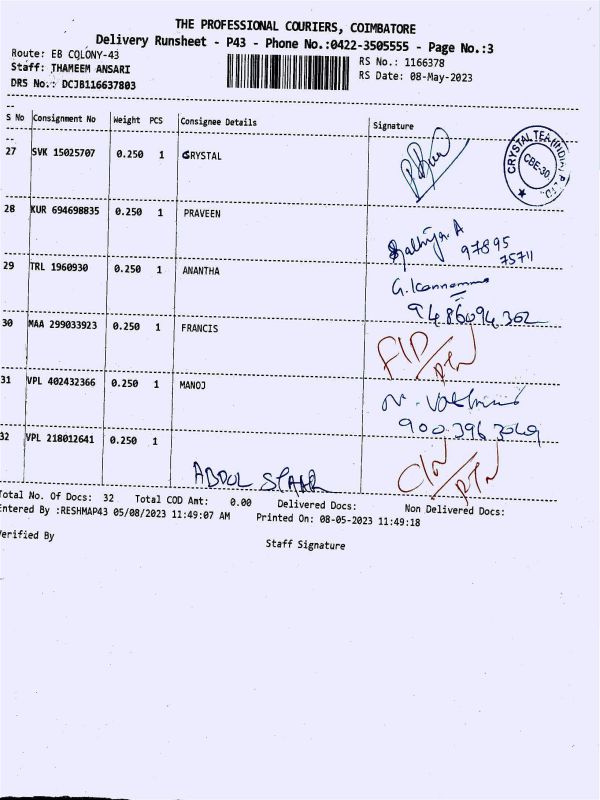 THE PROFESSIONAL COURIERS, COIMBATORE
Delivery Runsheet - P43 - Phone No.:0422-3505555 - Page No.:3
Route: EB COLONY-43
RS No.: 1166378
Staff: THAMEEM ANSARI
RS Date: 08-May-2023
DRS No.: DCJB116637803
S No Consignment No Weight PCS Consignee Details Signature
27 SVK 15025707 0.250 1 CRYSTAL
CRYSTAL TEA (INDIA) P LTD
CBE-30
28 KUR 694698835 0.250 1 PRAVEEN
97895
75711
29 TRL 1960930 0.250 1 ANANTHA
G. Kannamma
9486094302
30 MAA 299033923 0.250 1 FRANCIS
31 VPL 402432366 0.250 1 MANOJ
900 396 3069
32 VPL 218012641 0.250 1
ABDUL
Total No. Of Docs: 32 Total COD Amt: 0.00 Delivered Docs: Non Delivered Docs:
Entered By :RESHMAP43 05/08/2023 11:49:07 AM Printed On: 08-05-2023 11:49:18
Verified By Staff Signature